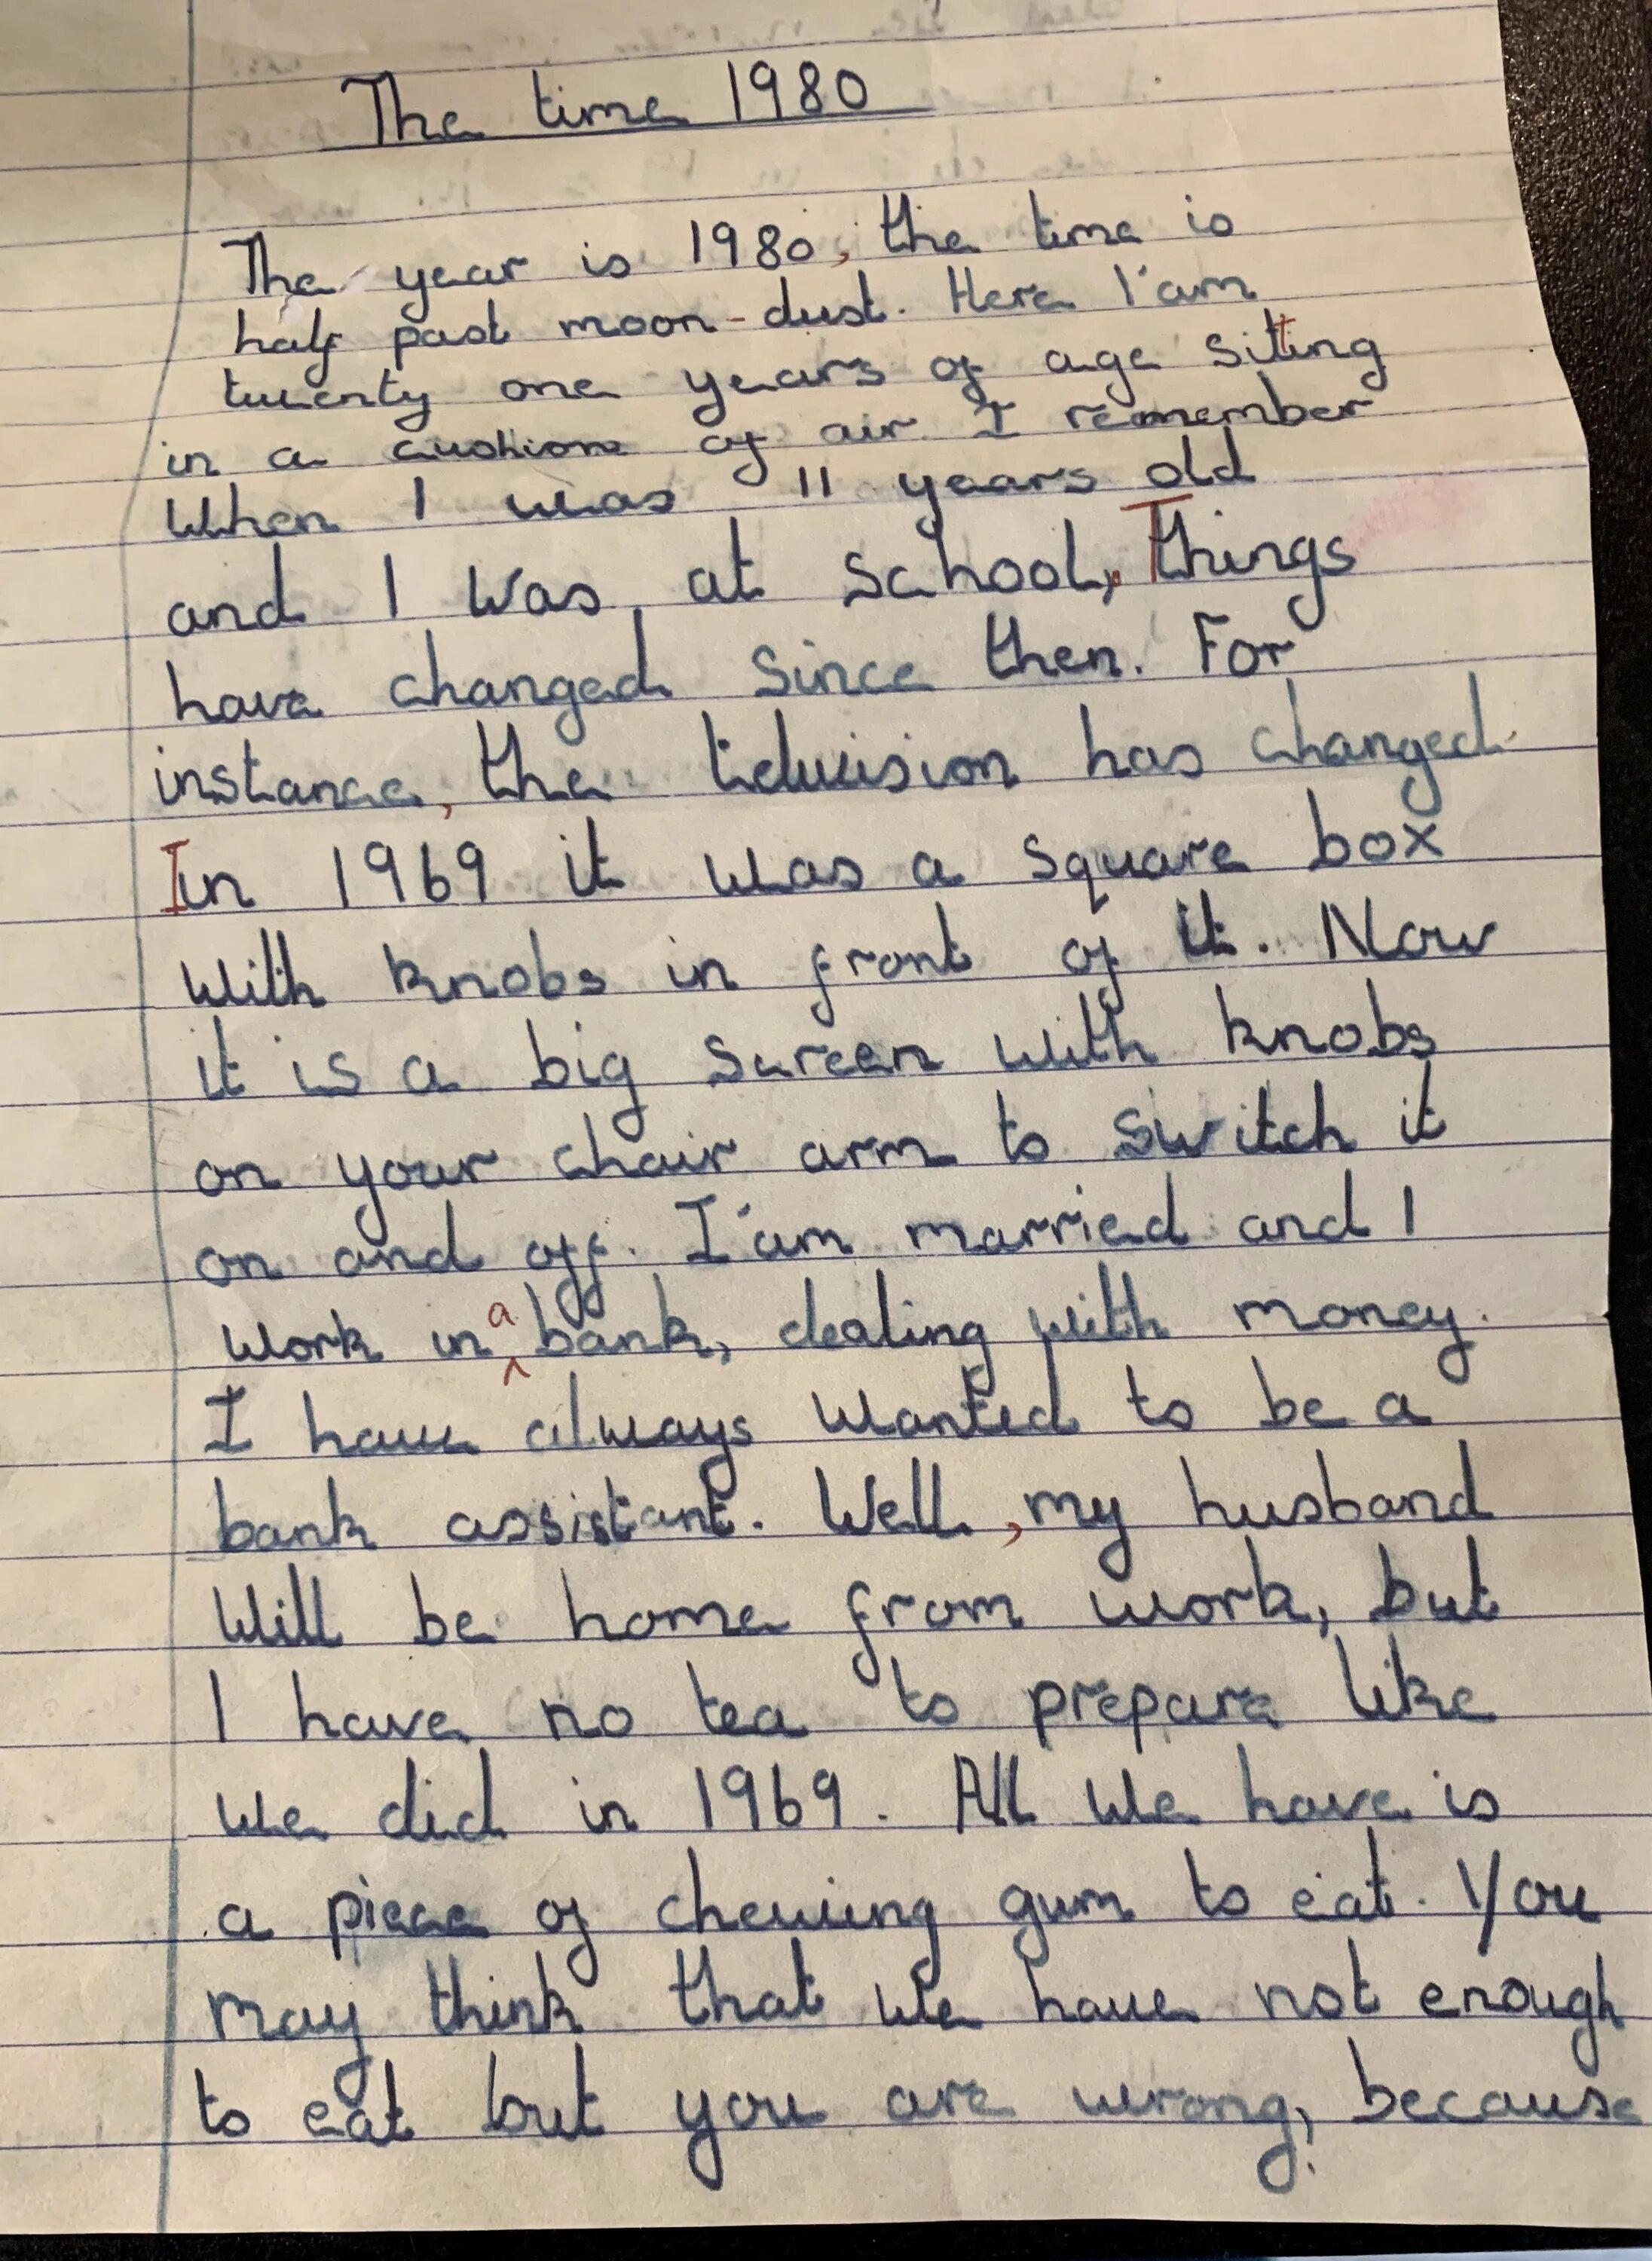 The time 1980
The year is 1980, the time is
half past moon-dust. Here I'am
twenty one years of age sitting
in a cushion of air. I remember
When I was 11 years old
and I was at school. Things
have changed since then. For
instance, the television has changed.
In 1969 it was a square box
with knobs in front of it. Now
it is a big screen with knobs
on your chair arm to switch it
on and off. I'am married and I
work in a bank, dealing with money.
I have always wanted to be a
bank assistant. Well, my husband
will be home from work, but
I have no tea to prepare like
we did in 1969. All we have is
a piece of chewing gum to eat. You
may think that we have not enough
to eat but you are wrong, because